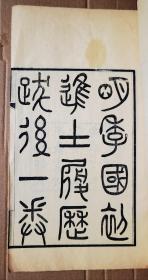 明季國初
進士履歷
跋後一卷